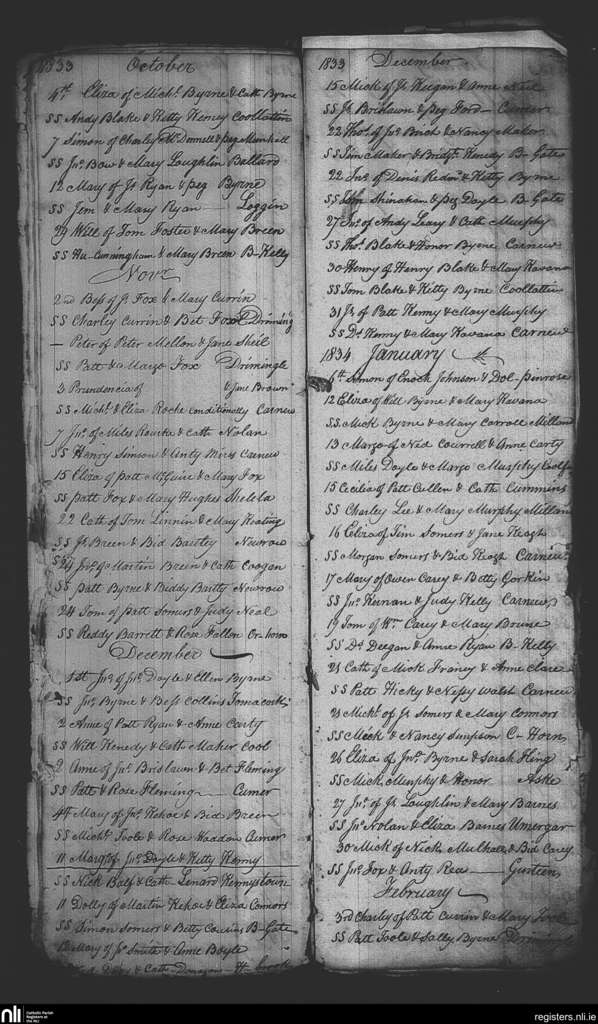 1833 October
4th Eliza of Michl. Byrne & Cath Byrne
SS Andy Blake & Kitty Henry Coollattin
7 Simon of Charley McDonnell & peg
SS Jno. Bow & Mary Loughlin Ballard
12 Mary of Js Ryan & peg Byrne
SS Jem & Mary Ryan Loggin
29 Will of Tom Foster & Mary Breen
SS Hu. Cunningham & Mary Breen B-Kelly
Novr
2nd Bess of Js. Fox & Mary Currin
SS Charley Currin & Bet Fox
– Peter of Peter Mellon & Jane Sheil
SS Patt & Margo Fox
3 Prundencia of & Jane Brown
SS Michl. & Eliza Roche conditionally Carnew
7 Jno. of Miles Rourke & Cath Nolan
SS Henry Simson & Anty Carnew
15 Eliza of patt McGuire & Mary Fox
SS patt Fox & Mary Hughes
22 Cath of Tom Lennin & Mary Keating
SS Js. Breen & Bid Newrow
24 Jno. of Martin Breen & Cath Coogan
SS patt Byrne & Biddy Newrow
24 Tom of patt Somers & Judy Neal
SS Reddy Barrett & Rose Fallon
December
1st Jno. of Jno. Doyle & Ellen Byrne
SS Jno. Byrne & Bess Collins
2 Anne of Patt Ryan & Anne Carty
SS Will Kenedy & Cath Maker Cool
2 Anne of Jno. Brislawn & Bet Fleming
SS Patt & Rose Fleming Cumer
4th Mary of Jno. Kehoe & Bid Breen
SS Michl. Toole & Rose Haddon Cumer
11 Margt. of Jno. Doyle & Kitty Kenny
SS Nick Balf & Cath Lenard
11 Dolly of Martin Kehoe & Eliza Comors
SS Simon Somers & Betty B-Gate
Mary of Js. Smith & Anne Boyle
& Cath
1833 December
15 Mick of Js. Keegan & Anne Neil
SS Js. Brislawn & peg Ford Cumer
22 Thos. of Jno. Brick & Nancy Maker
SS Tim Maker & Bridgt. Kenedy B-Gate
22 Jno. of Denis Redmd. & Kitty Byrne
SS Tom Shinahan & peg Doyle B-Gate
27 Jno. of Andy Leary & Cath Murphy
SS Thos. Blake & Honor Byrne Carnew
30 Henry of Henry Blake & Mary Kavana
SS Tom Blake & Kitty Byrne Coollattin
31 Js. of Patt Kenny & Mary Murphy
SS Ds. Kenny & Mary Kavana Carnew
1834 January
6th Simon of Enoch Johnson & Dol- penrose
12 Eliza of Will Byrne & Mary Kavana
SS Mick Byrne & Mary Carroll
13 Margo of Ned Courrell & Anne Carty
SS Miles Doyle & Margo Murphy
15 Cecilia of Patt Cullen & Cath Cummins
SS Charley Lee & Mary Murphy
16 Eliza of Jim Somers & Jane Keogh
SS Morgan Somers & Bid Keogh Carnew
17 Mary of Owen Carey & Betty Gorkin
SS Jno. Kernan & Judy Kelly Carnew
19 Tom of Wm. Carey & Mary Bourne
SS Ds. Deegan & Anne Ryan B-Kelly
21 Cath of Mick Franey & Anne Clare
SS Patt Hicky & Nessy Walsh Carnew
21 Michl. of Js. Somers & Mary Connors
SS & Nancy Simpson
26 Eliza of Jno. Byrne & Sarah
SS Mick Murphy & Honor Aske
27 Jno. of Js. Loughlin & Mary Barnes
SS Jno. Nolan & Eliza Barnes Umergar
30 Mick of Nicks. Mulhall & Bid Carey
SS Jno. Fox & Anty Rea
February
3rd Charly of Patt Currin & Mary Toole
SS Patt Toole & Sally Byrne
nli
Catholic Parish
Registers at
the NLI
registers.nli.ie